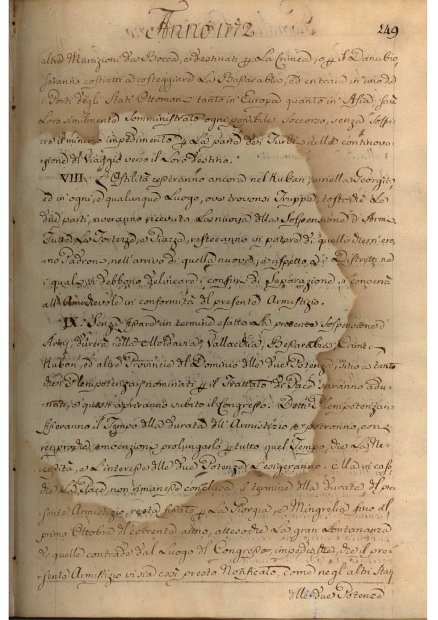 Anno 1772
249
altre Munizioni da Bocca, e destinati p La Crimea, o p il Danubio,
saranno costretti a costeggiare La Bessarabia, ed entrare in uno de
i Porti degli Stati Ottomani tanto in Europa quanto in Asia, sarà
Loro similmente somministrato ogni possibile soccorso, senza soffri-
re il minimo impedimento p La parte dei Turchi nella continova-
zione del Viaggio verso il Loro destino.
VIII. Ostilità cesseranno ancora nel Kuban, o nella Georgia,
ed in ogni, e qualunque Luogo, ove trovonsi Truppe, tosto che Le
due parti, averanno ricevuta La nuova della Sospensione d'Armi
Tutte Le Fortezze, e Piazze, resteranno in potere di quello che ni era-
no Padroni nell'arrivo di quella nuova, e rispetto ai Distretti ne
i quali si debbono delineare i confini di separazione, si converrà
all'Amichevole in conformità del presente Armistizio.
IX. Senza fissare un termine esatto La presente Sospensione d'
Armi, durerà nella Moldavia, Vallacchia, Bessarabia, Crim.
Kuban, ed altre Provincie del Dominio delle due Potenze, sino a tanto
che i Plenipotenziarj nominati p il Trattato di Pace saranno adu-
nati, e questi apriranno subito il Congresso. Detti Plenipotenziarj
fisseranno il Tempo della durata dell'Armistizio, e potranno, con
reciproca convenzione prolungarlo p tutto quel Tempo, che La Ne-
cessità, e L'interesse delle due Potenze L'esigeranno, e Ma in caso
che La Pace, non rimanesse conclusa, il termine della durata del pre-
sente Armistizio, resta fissato p La Giorgia, e Mingrelia fino al
primo Ottobre del corrente anno, attesoche La gran Lontananza
di quelle contrade dal Luogo del Congresso, impedirebbe, che il pre-
sente Armistizio vi sia così presto Notificato, come negl'altri Stati
delle due Potenze